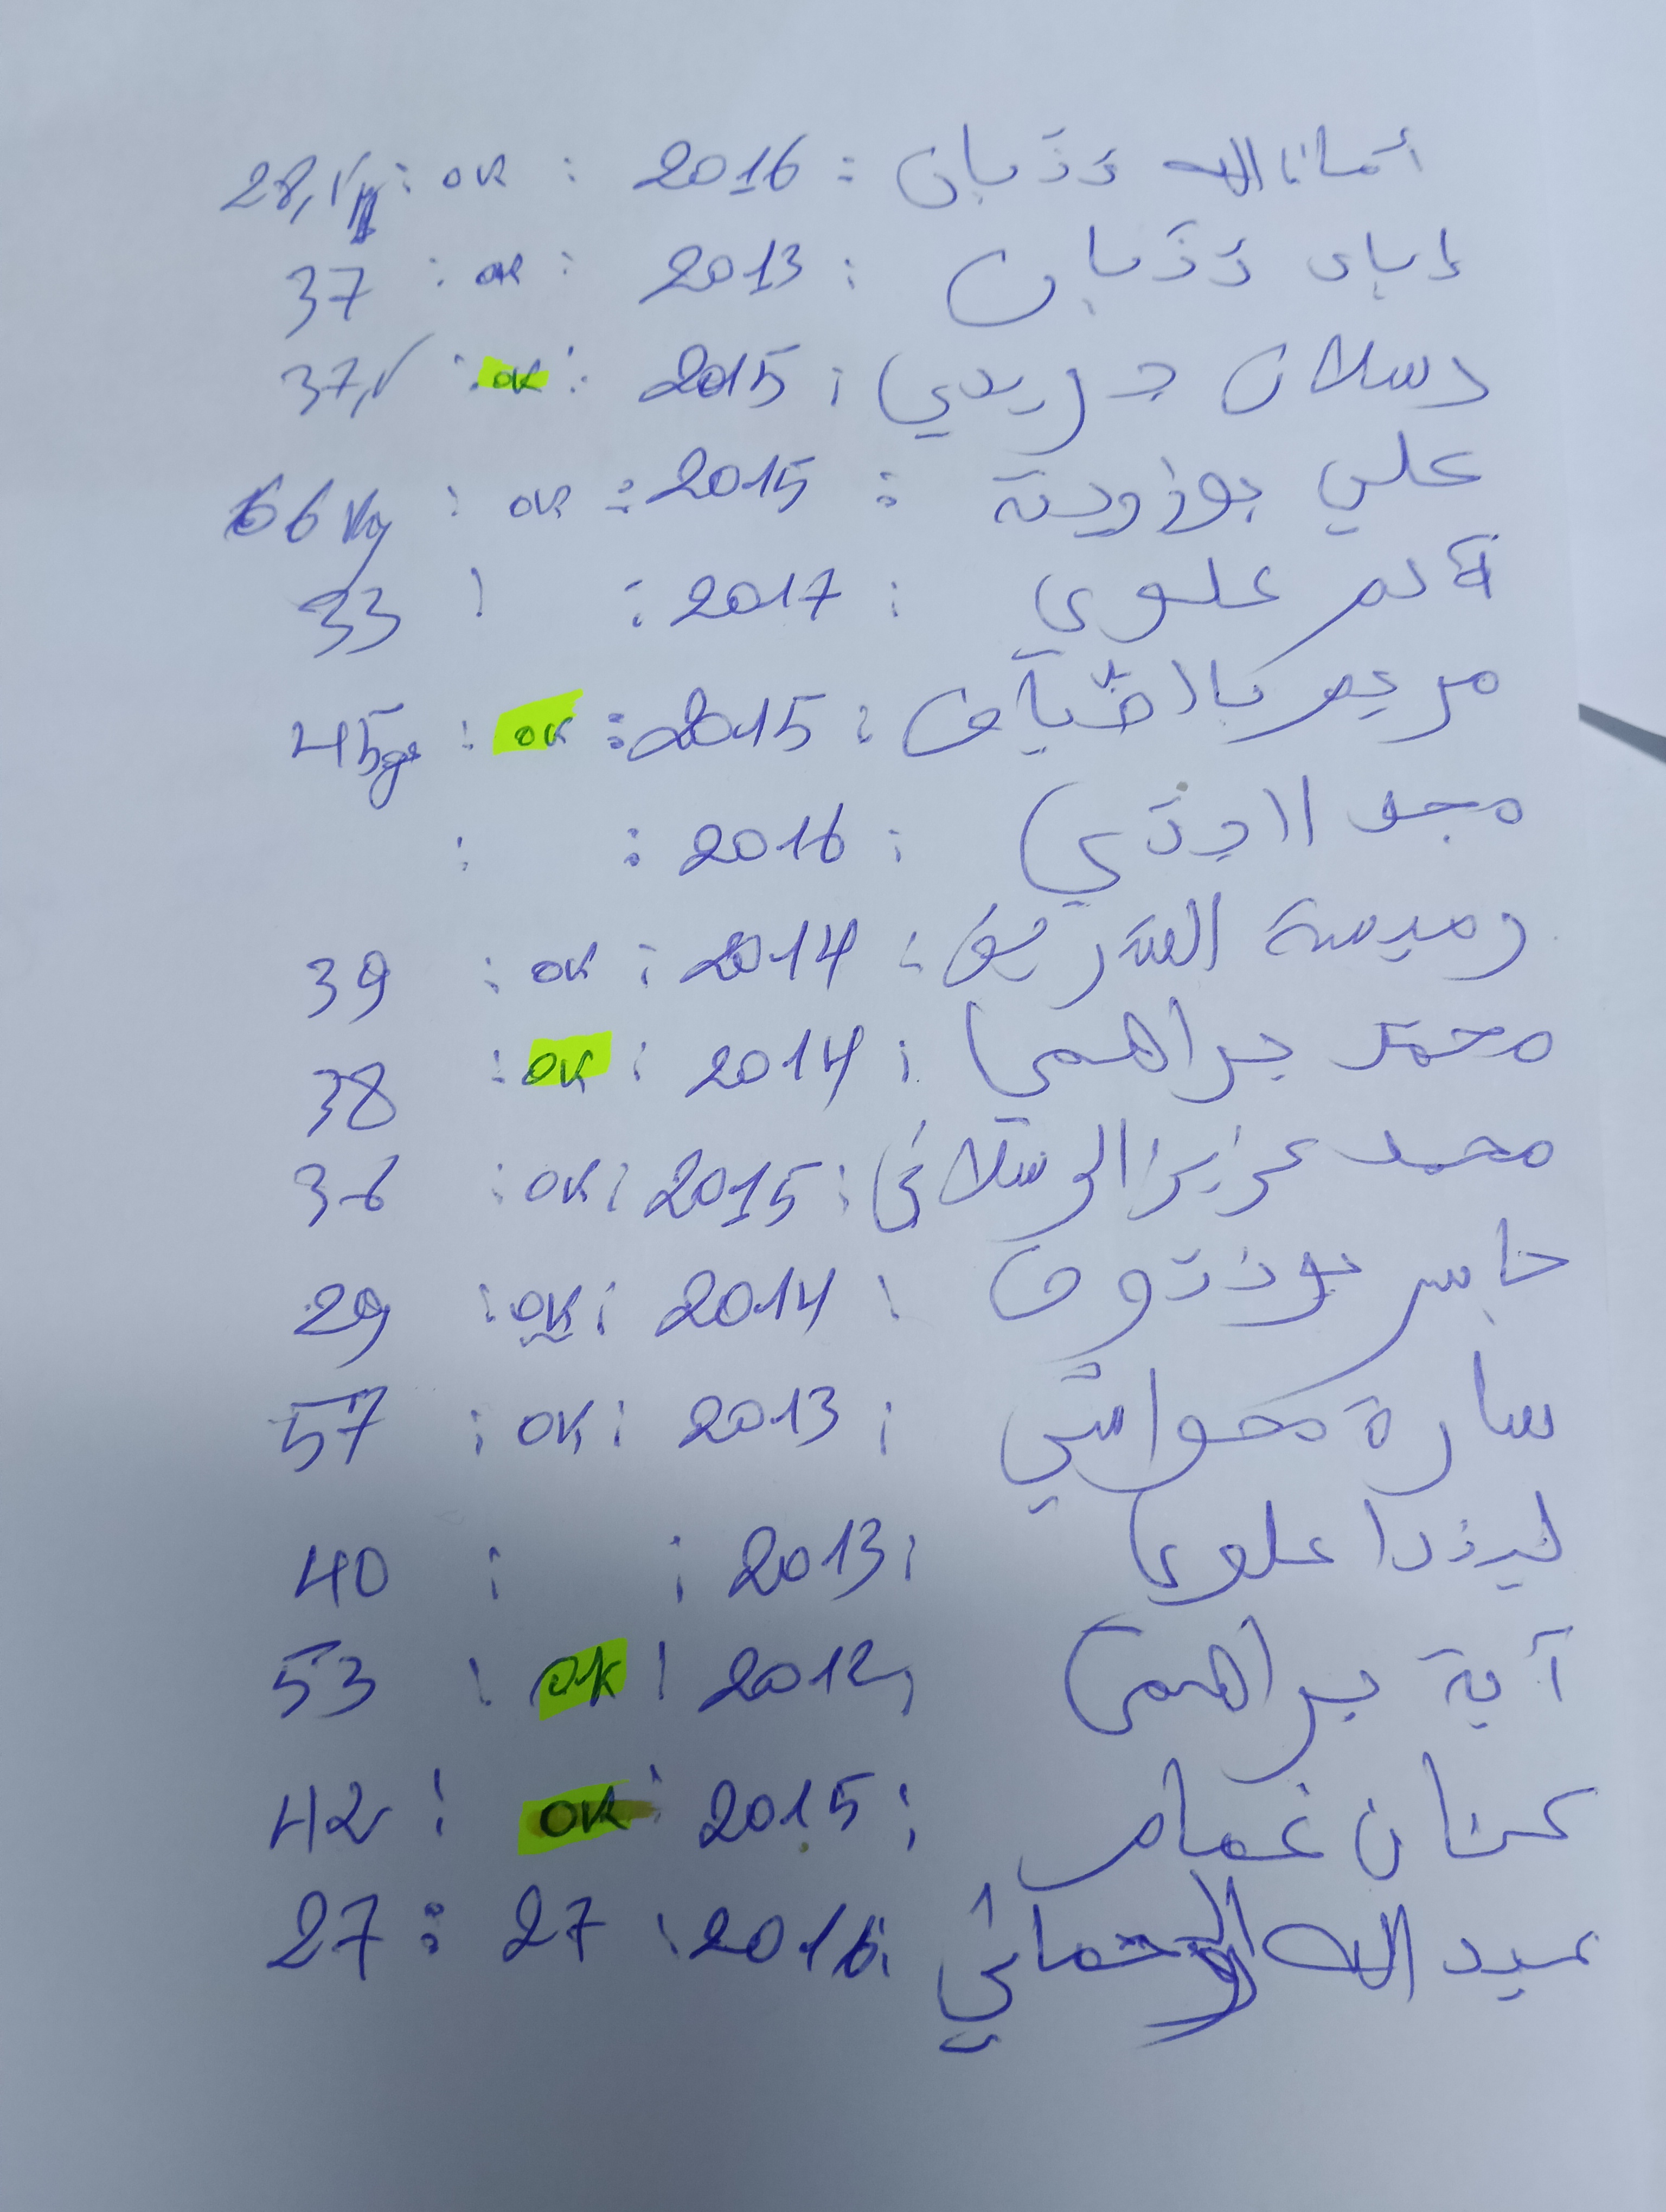 أمان الله ذذبان : 2016 : ok : 28,
إياد ذذبان : 2013 : ok : 37
رسلان دريدي : 2015 : ok : 37,
علي بوزودة : 2015 : ok : 66 Kg
علوي : 2017 : : 33
مريم بالضياف : 2015 : ok : 45
: 2016 : :
رميسة الشريف : 2014 : ok : 39
محمد براهمي : 2014 : ok : 38
محمد عزيز الوسلاتي : 2015 : ok : 36
: 2014 : ok : 29
سارة حواشي : 2013 : ok : 57
ليندا علوي : 2013 : : 40
آية براهمي : 2012 : ok : 53
غمام : 2015 : ok : 42
عبد الله الرحماني : 2016 : 27 : 27